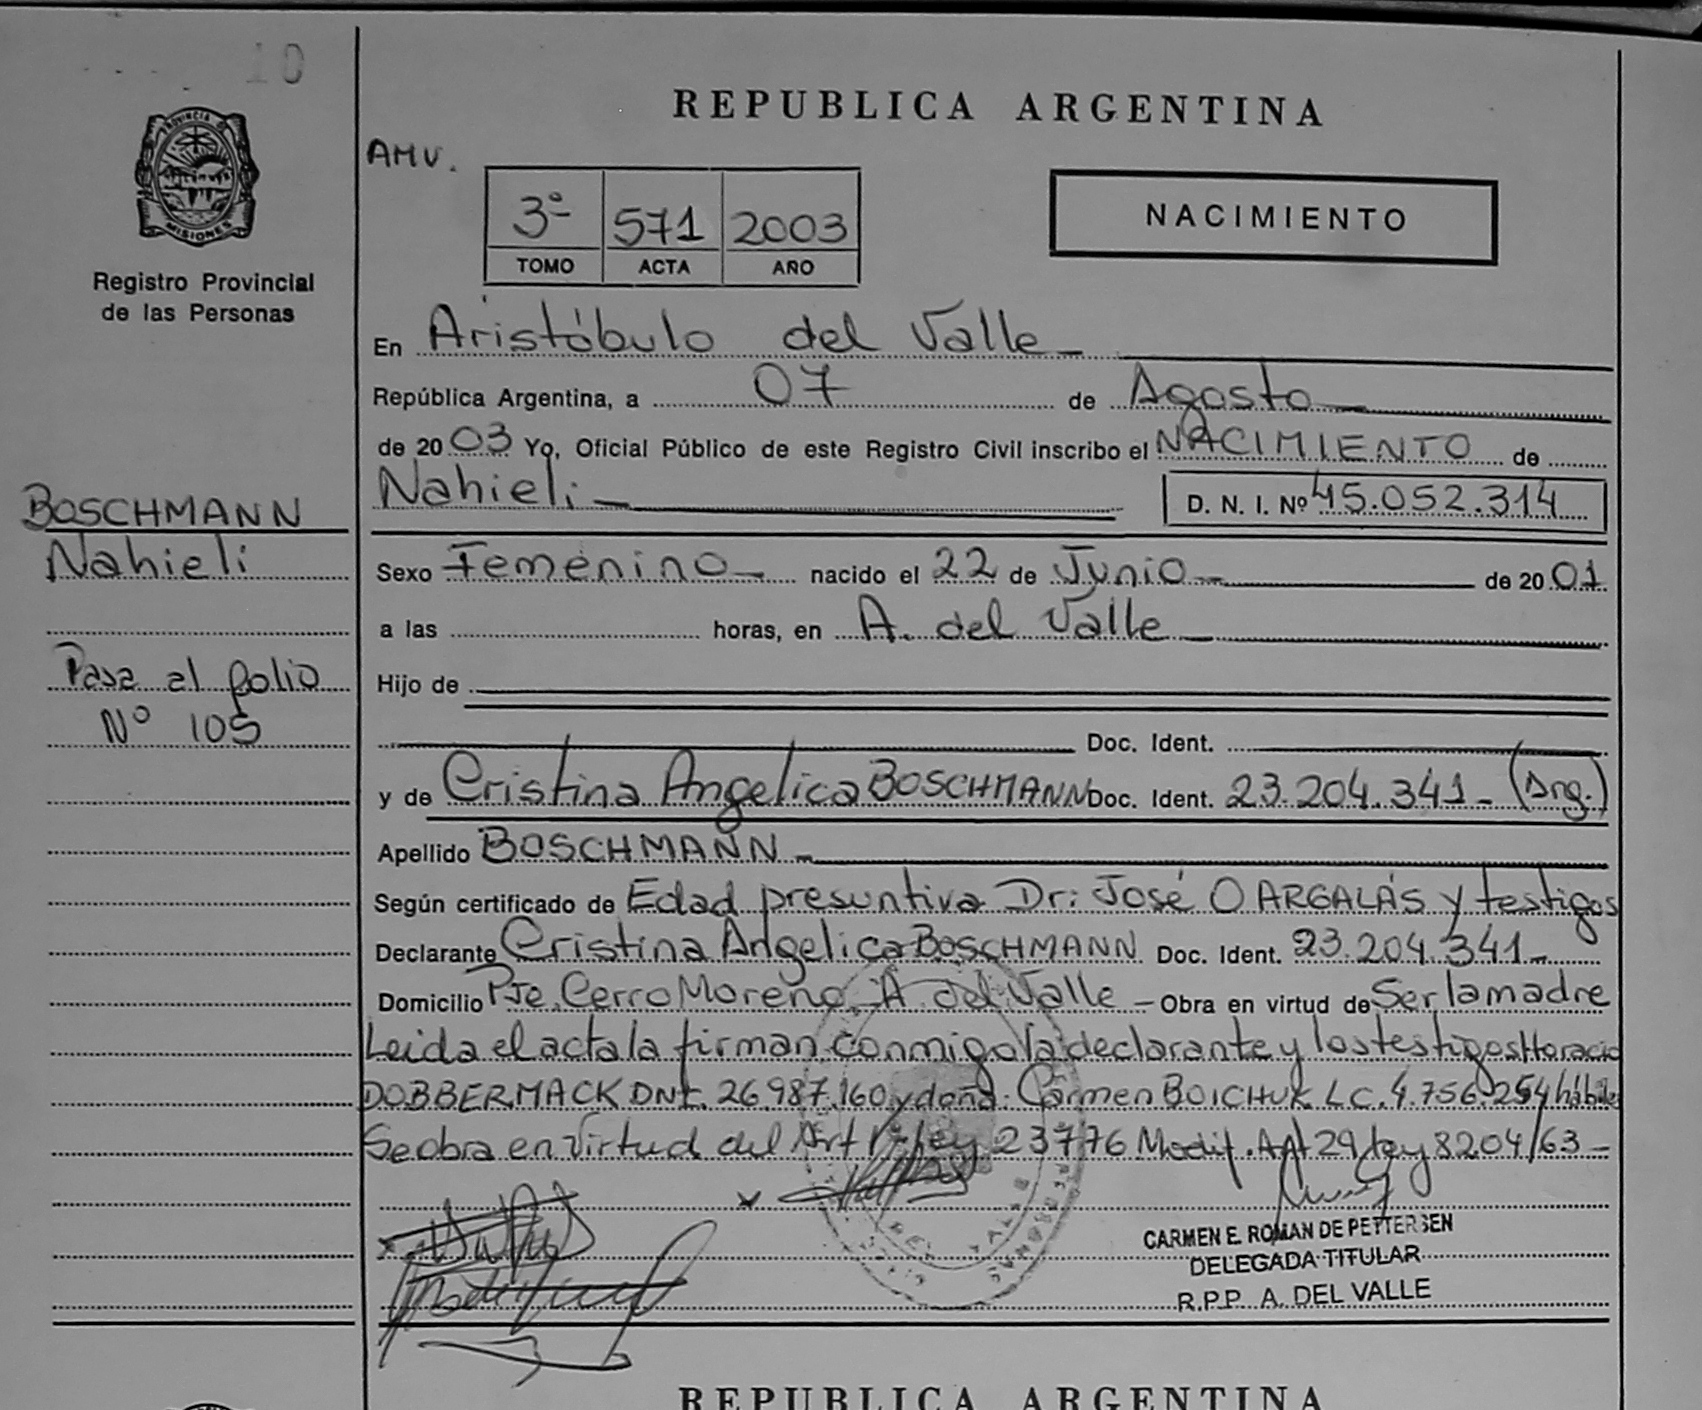 10
PROVINCIA DE
MISIONES
Registro Provincial
de las Personas
BOSCHMANN
Nahieli
Pasa al folio
Nº 105
REPUBLICA ARGENTINA
AMV.
3º 571 2003
TOMO ACTA AÑO
NACIMIENTO
En Aristóbulo del Valle
República Argentina, a 07 de Agosto
de 2003 Yo, Oficial Público de este Registro Civil inscribo el NACIMIENTO de
Nahieli D. N. I. Nº 45.052.314
Sexo Femenino nacido el 22 de Junio de 2001
a las horas, en A. del Valle
Hijo de
Doc. Ident.
y de Cristina Angelica BOSCHMANN Doc. Ident. 23.204.341 - (Arg.)
Apellido BOSCHMANN
Según certificado de Edad presuntiva Dr: José O ARGALÁS y testigos
Declarante Cristina Angelica BOSCHMANN Doc. Ident. 23.204.341
Domicilio Pje. Cerro Moreno A. del Valle - Obra en virtud de Ser la madre
Leida el acta la firman conmigo la declarante y los testigos Horacio
DOBBERMACK DNI. 26.987.160 y doña Carmen BOICHUK LC. 4.756.254 hábiles
Se obra en Virtud del Art 1º Ley 23776 Modif. Art 29 Ley 8204/63 -
CARMEN E. ROMAN DE PETTERSEN
DELEGADA TITULAR
R.P.P. A. DEL VALLE
REPUBLICA ARGENTINA